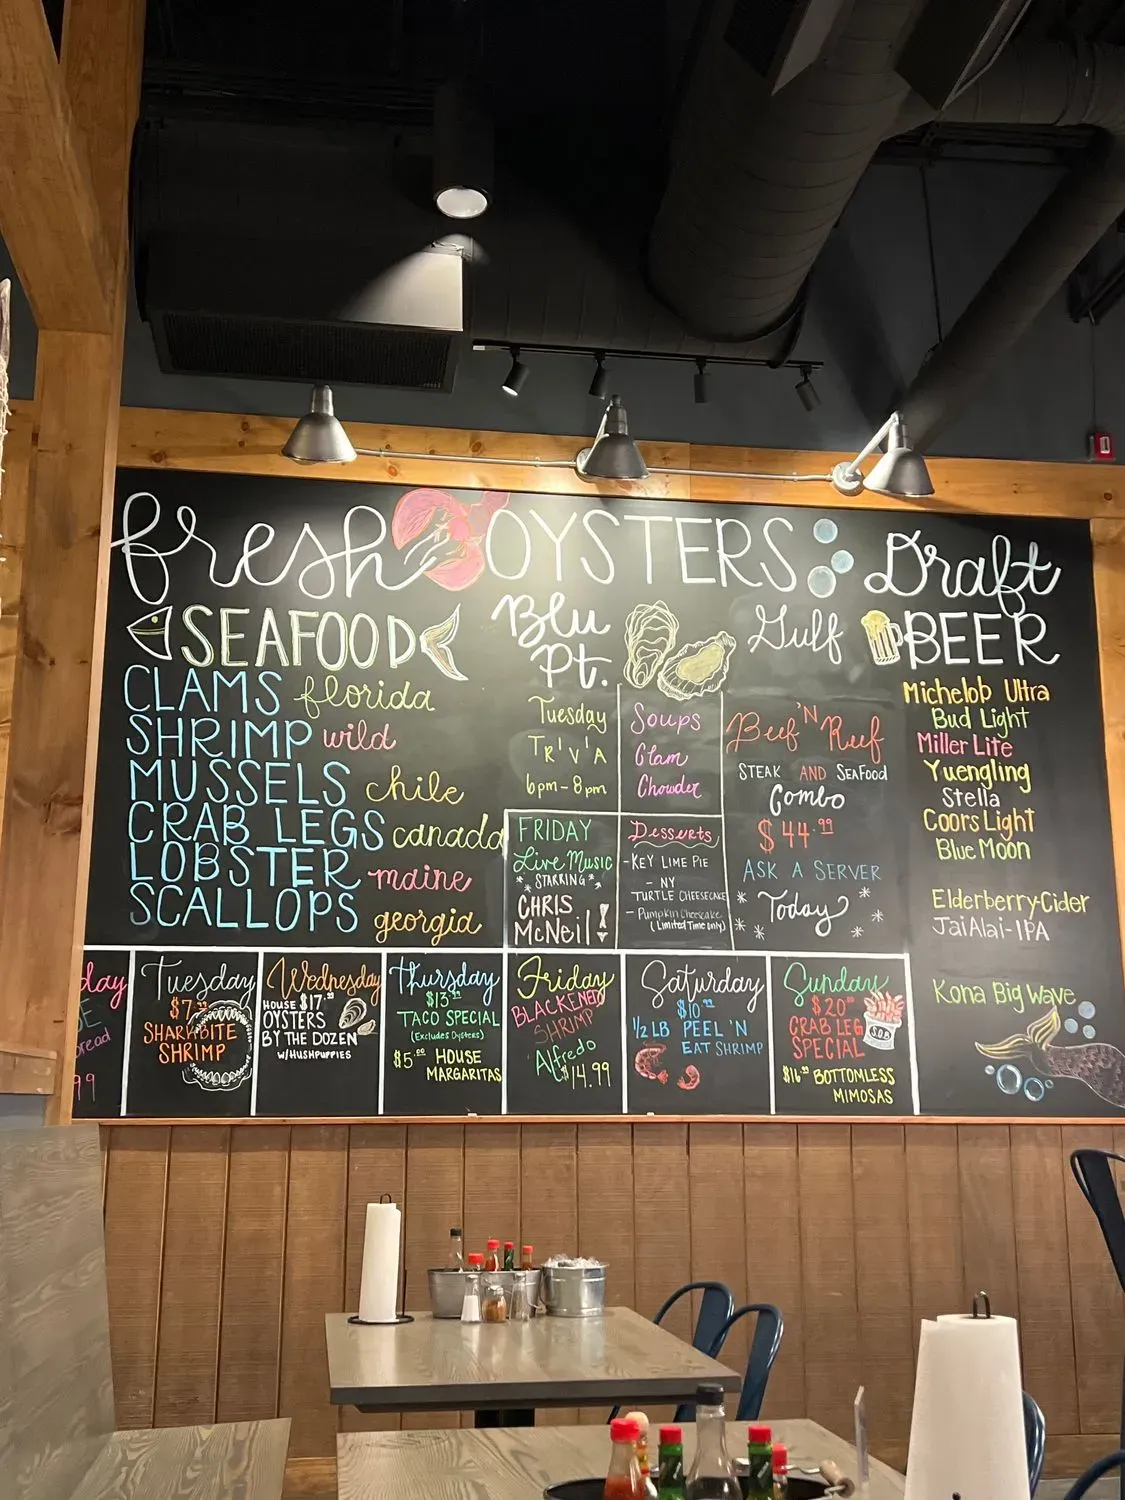 fresh
SEAFOOD
CLAMS florida
SHRIMP wild
MUSSELS chile
CRAB LEGS canada
LOBSTER maine
SCALLOPS georgia
OYSTERS
Blu
Pt.
Gulf
Tuesday
TRIVIA
6pm-8pm
Soups
Clam
Chowder
FRIDAY
Live Music
STARRING
CHRIS
McNeil!
Desserts
-KEY LIME PIE
- NY
TURTLE CHEESECAKE
- Pumpkin Cheesecake
(Limited Time only)
Beef 'N Reef
STEAK AND SEAFOOD
Combo
$44.99
ASK A SERVER
Today
Draft
BEER
Michelob Ultra
Bud Light
Miller Lite
Yuengling
Stella
Coors Light
Blue Moon
Elderberry-Cider
JaiAlai-IPA
Kona Big Wave
day
read
99
Tuesday
SHARKBITE
SHRIMP
Wednesday
HOUSE $17.
OYSTERS
BY THE DOZEN
W/HUSHPUPPIES
Thursday
$13.
TACO SPECIAL
(Excludes Oysters)
$5.00 HOUSE
MARGARITAS
Friday
BLACKENED
SHRIMP
Alfredo
$14.99
Saturday
$10.
1/2 LB PEEL 'N
EAT SHRIMP
Sunday
$20
CRAB LEG
SPECIAL
$16. BOTTOMLESS
MIMOSAS